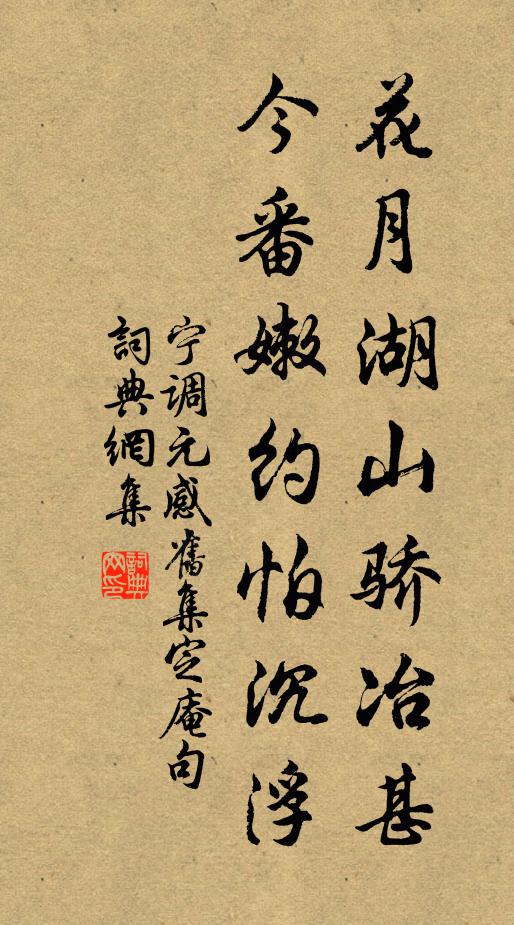 花月湖山骄冶甚
今番嫩约怕沉浮
宁调元感舊集定庵句
詞典網集
詞典網印